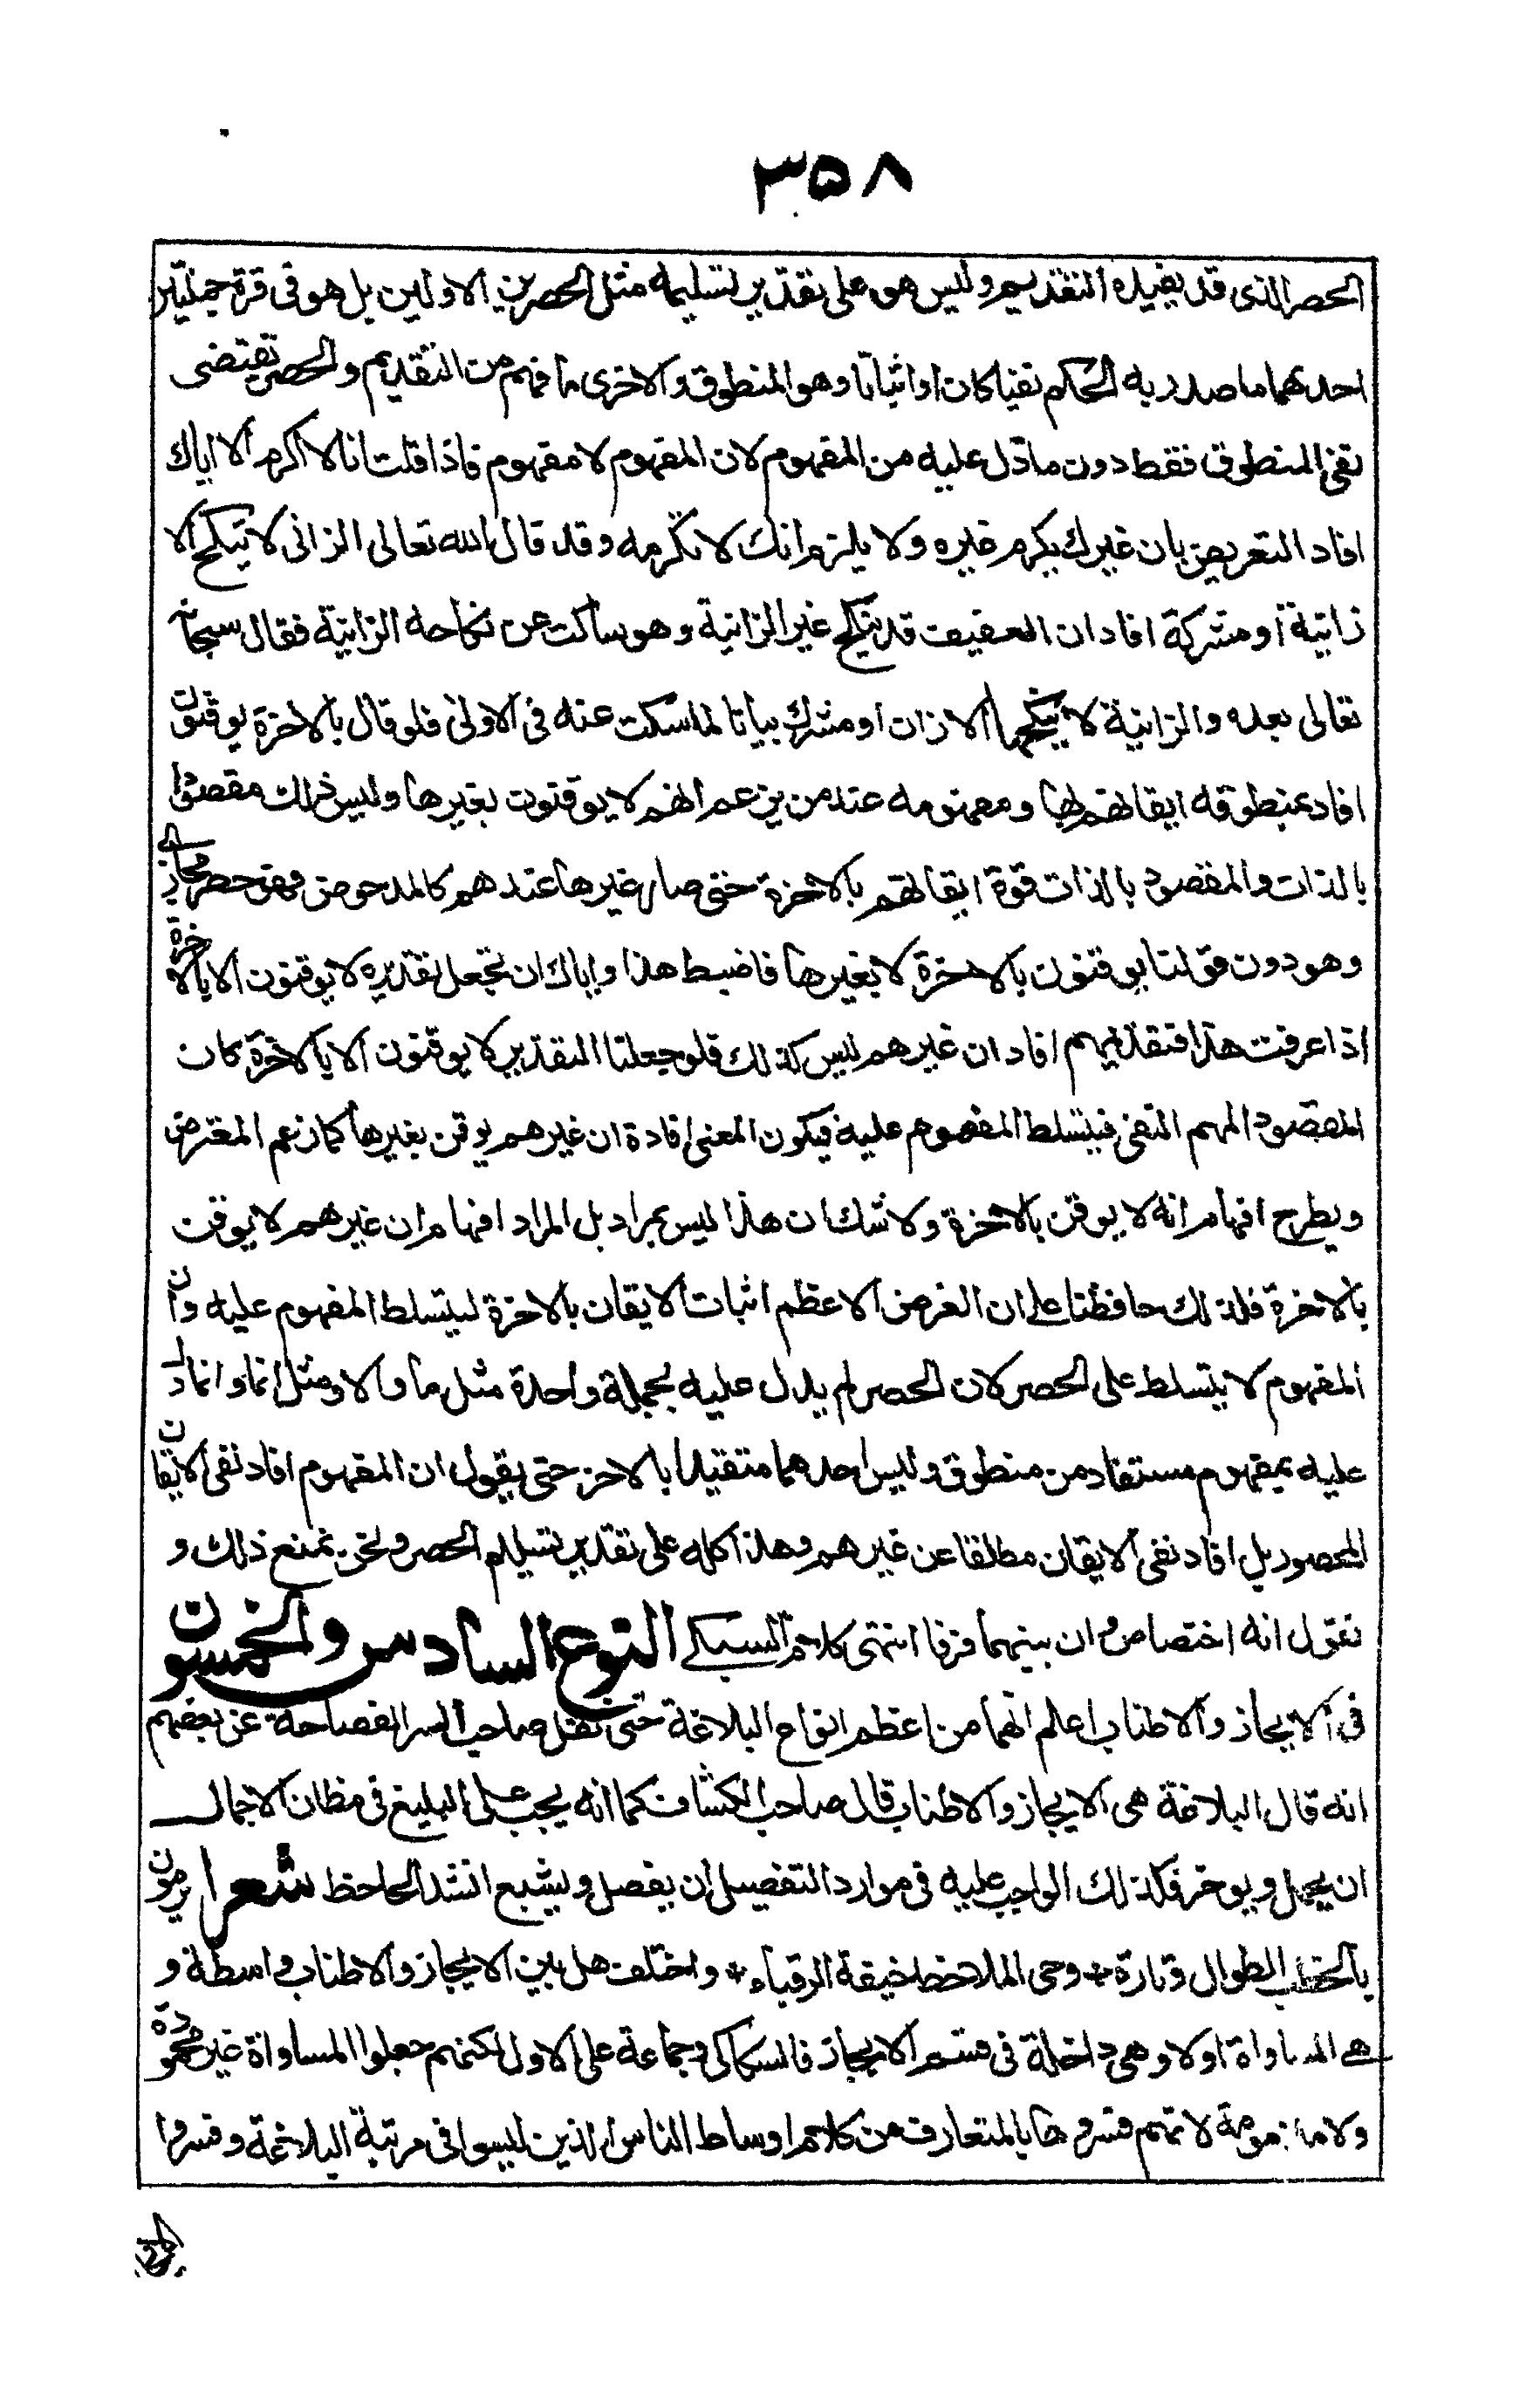 ٣٥٨
الحصر الذى قد يفيده التقديم وليس هو على تقدير تسليمه مثل الحصرين الاولين بل هو فى قوة جملتين
احدىهما ما صدر به الحكم نفيا كان او اثباتا وهو المنطوق والاخرى ما فهم من التقديم والحصر تقتضى
نفى المنطوق فقط دون ما دل عليه من المفهوم لان المفهوم لا مفهوم فاذا قلت انا لا اكرم الا اياك
افاد التعريض بان غيرك يكرم غيره ولا يلزم انك لا تكرمه وقد قال الله تعالى الزانى لا ينكح الا
زانية او مشركة افاد ان العفيف قد ينكح غير الزانية وهو ساكت عن نكاحه الزانية فقال سبحانه
تعالى بعده والزانية لا ينكحها الا زان او مشرك بيانا لما سكت عنه فى الاولى فلو قال بالاخرة يوقنون
افاد بمنطوقه ايقانهم لها ومفهومه عند من يزعم انهم لا يوقنون بغيرها وليس ذلك مقصودا
بالذات والمقصود بالذات قوة ايقانهم بالاخرة حتى صار غيرها عندهم كالمدحوض فهو حصر مجازى
وهو دون قولنا يوقنون بالاخرة لا بغيرها فاضبط هذا واياك ان تجعل تقديره لا يوقنون الا بالاخرة
اذا عرفت هذا فتقديم هم افاد ان غيرهم ليس كذلك فلو جعلنا التقدير لا يوقنون الا بالاخرة كان
المقصود المهم النفى فيتسلط المفهوم عليه فيكون المعنى افادة ان غيرهم يوقن بغيرها كما زعم المعترض
ويطرح افهام انه لا يوقن بالاخرة ولا شك ان هذا ليس بمراد بل المراد افهام ان غيرهم لا يوقن
بالاخرة فلذلك حافظنا على ان الغرض الاعظم اثبات الايقان بالاخرة ليتسلط المفهوم عليه وان
المفهوم لا يتسلط على الحصر لان الحصر لم يدل عليه بجملة واحدة مثل ما والا ومثل انما وانما دل
عليه بمفهوم مستفاد من منطوق وليس احدهما متقيدا بالاخر حتى يقول ان المفهوم افاد نفى الايقان
المحصور بل افاد نفى الايقان مطلقا عن غيرهم وهذا كله على تقدير تسليم الحصر ونحن نمنع ذلك و
نقول انه اختصاص وان بينهما فرقا انتهى كلام السبكى النوع السادس والخمسون
فى الايجاز والاطناب اعلم انهما من اعظم انواع البلاغة حتى نقل صاحب سر الفصاحة عن بعضهم
انه قال البلاغة هى الايجاز والاطناب قال صاحب الكشاف كما انه يجب على البليغ فى مظان الاجمال
ان يجمل ويوجز فكذلك الواجب عليه فى موارد التفصيل ان يفصل ويشبع انشد الجاحظ شعر يرمون
بالخطب الطوال وتارة * وحى الملاحظ خيفة الرقباء * واختلف هل بين الايجاز والاطناب واسطة و
هى المساواة اولا وهى داخلة فى قسم الايجاز فالسكاكى وجماعة على الاول لكنهم جعلوا المساواة غير محمودة
ولا مذمومة لانهم فسروها بالمتعارف من كلام اوساط الناس الذين ليسوا فى مرتبة البلاغة وفسروا